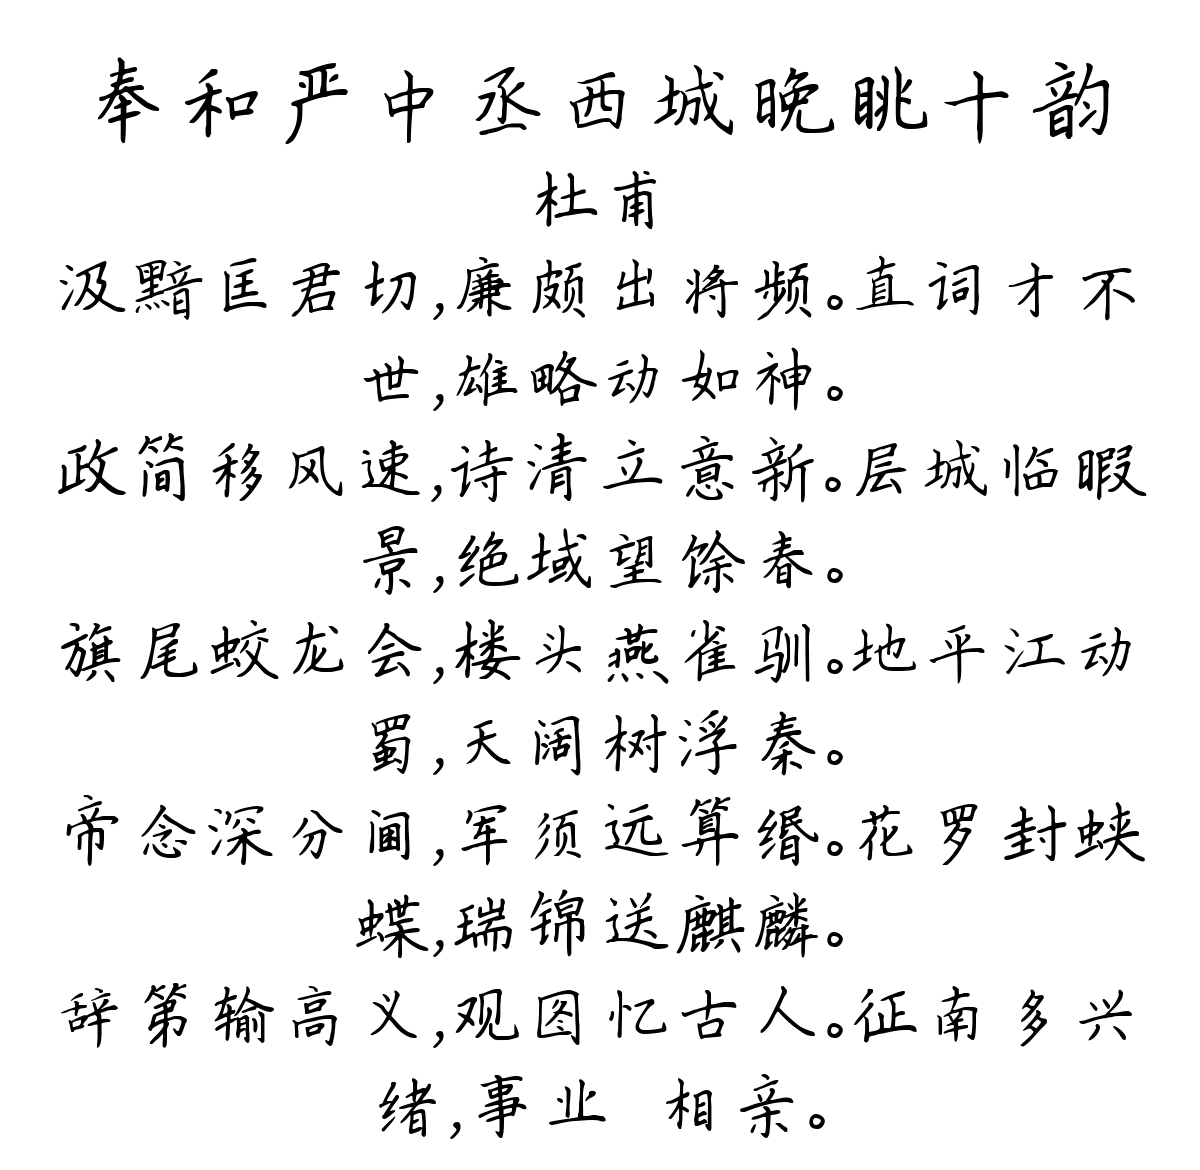 奉和严中丞西城晚眺十韵
杜甫
汲黯匡君切,廉颇出将频。直词才不
世,雄略动如神。
政简移风速,诗清立意新。层城临暇
景,绝域望馀春。
旗尾蛟龙会,楼头燕雀驯。地平江动
蜀,天阔树浮秦。
帝念深分阃,军须远算缗。花罗封蛱
蝶,瑞锦送麒麟。
辞第输高义,观图忆古人。征南多兴
绪,事业 相亲。